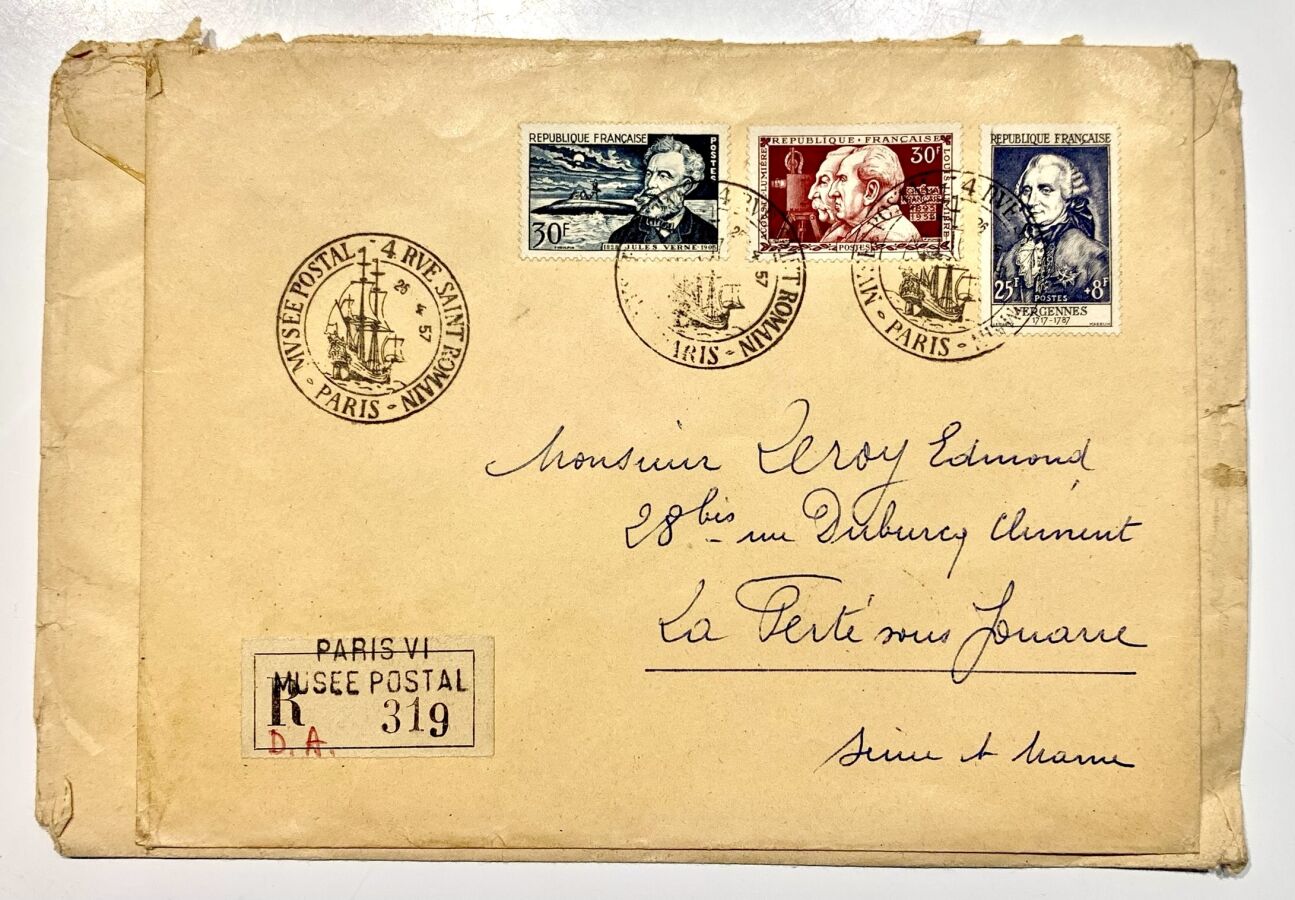 REPUBLIQUE FRANÇAISE
POSTES
30F
1828 JULES VERNE 1905
REPUBLIQUE • FRANÇAISE
30F
AUGUSTE LUMIÈRE
LOUIS LUMIÈRE
CINÉMA
FRANÇAIS
1895
1955
POSTES
REPUBLIQUE FRANÇAISE
25F +8F
POSTES
VERGENNES
1717-1787
MVSÉE POSTAL - 4 RVE SAINT ROMAIN - PARIS -
26 4 57
4 RV
T ROMAIN - ARIS
4 57
4 RVE
MV
- PARIS -
Monsieur Leroy Edmond
28 bis rue Duburcq Clément
La Ferté sous Jouarre
Seine et Marne
PARIS VI
MUSEE POSTAL
R 319
D.A.